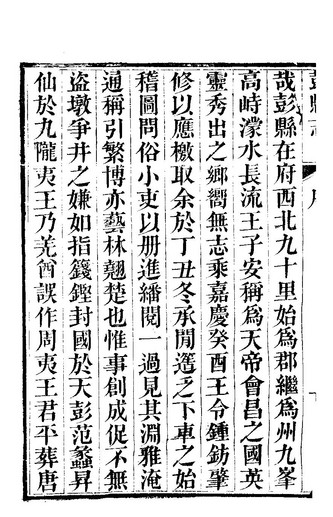 彭縣志 序
哉彭縣在府西北九十里始為郡繼為州九峯
高峙濛水長流王子安稱為天帝會昌之國英
靈秀出之鄉嚮無志乘嘉慶癸酉王令鍾鈁肇
修以應檄取余於丁丑冬承閒簉乏下車之始
稽圖問俗小吏以册進繙閱一過見其淵雅淹
通稱引繁博亦藝林翹楚也惟事創成促不無
盜墩爭井之嫌如指籛鏗封國於天彭范蠡昇
仙於九隴夷王乃羌酋誤作周夷王君平葬唐